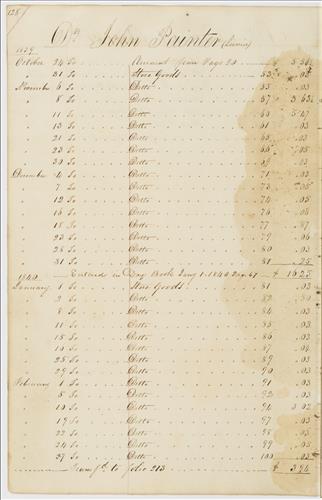 128
Dr John Painter (Lewis)
1839
October 24 To Amount from Page 20
31 To Store Goods 53 .03
November 6 To Ditto 55 .03
8 To Ditto 57 3 63
11 To Ditto 60
13 To Ditto 61 .03
21 To Ditto 65 .03
23 To Ditto 66 .05
30 To Ditto 69 .03
December 4 To Ditto 71 .03
7 To Ditto 73 .05
12 To Ditto 74 .05
16 To Ditto 76 .06
18 To Ditto 77 .87
23 To Ditto 79 .06
28 To Ditto 80 .03
31 To Ditto 81 .25
1840 Entered in Day Book Jany 1. 1840 Page 67 $ 16 25
January 1 To Store Goods 81 .03
2 To Ditto 82
8 To Ditto 84 .03
11 To Ditto 85 .03
15 To Ditto 86 .03
20 To Ditto 87
25 To Ditto 89 .03
29 To Ditto 90 .03
February 1 To Ditto 91 .03
5 To Ditto 92 .03
10 To Ditto 94 3 02
19 To Ditto 97 .03
22 To Ditto 98 .03
24 To Ditto 99 .05
27 To Ditto 100 .03
Transfd. to folio 213 $ 3 94